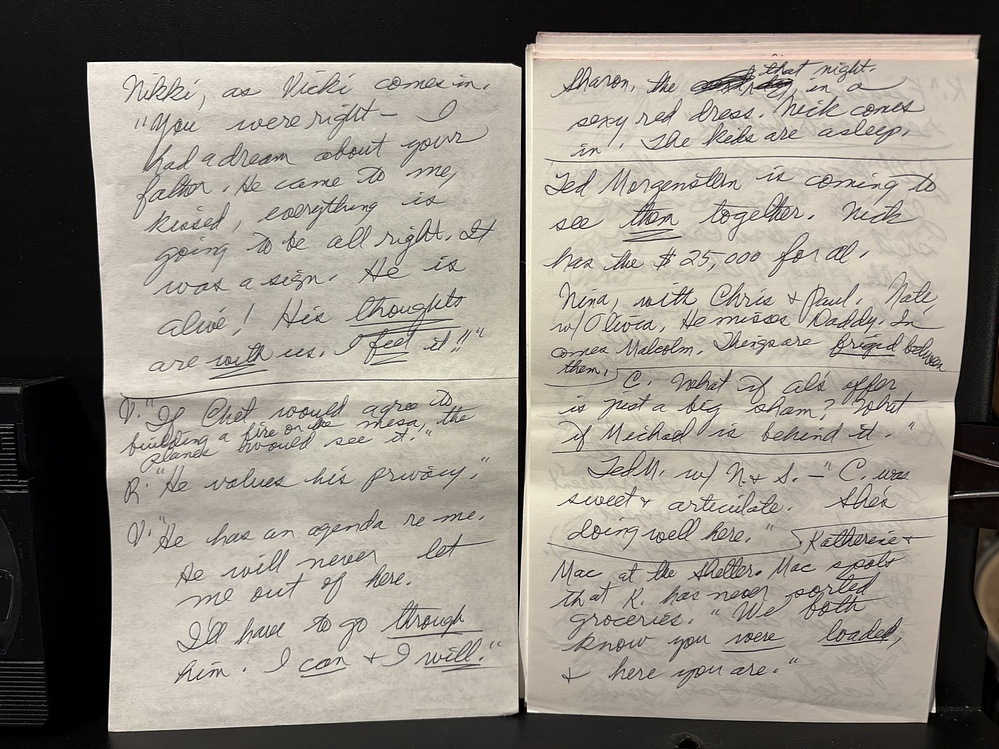 Nikki, as Vicki comes in.
"You were right – I
had a dream about your
father. He came to me,
kissed, everything is
going to be all right. It
was a sign. He is
alive! His thoughts
are with us. I feel it!!"
V. "If Chet would agree to
building a fire on the mesa, the
planes would see it."
R. "He values his privacy."
V. "He has an agenda re me.
He will never let
me out of here.
I'll have to go through
him. I can + I will."
Sharon, the that night.
in a
sexy red dress. Nick comes
in. The kids are asleep.
Ted Morgenstern is coming to
see them together. Nick
has the $25,000 for al.
Nina, with Chris + Paul. Nate,
w/ Olivia. He misses Daddy. In
comes Malcolm. Things are friged between
them.
C. What if al's offer
is just a big sham? What
if Michael is behind it."
Ted M. w/ N. + S. – "C. was
sweet + articulate. She's
doing well here."
Katherine +
Mac at the shelter. Mac spots
that K. has never sorted
groceries. "We both
know you were loaded,
+ here you are."